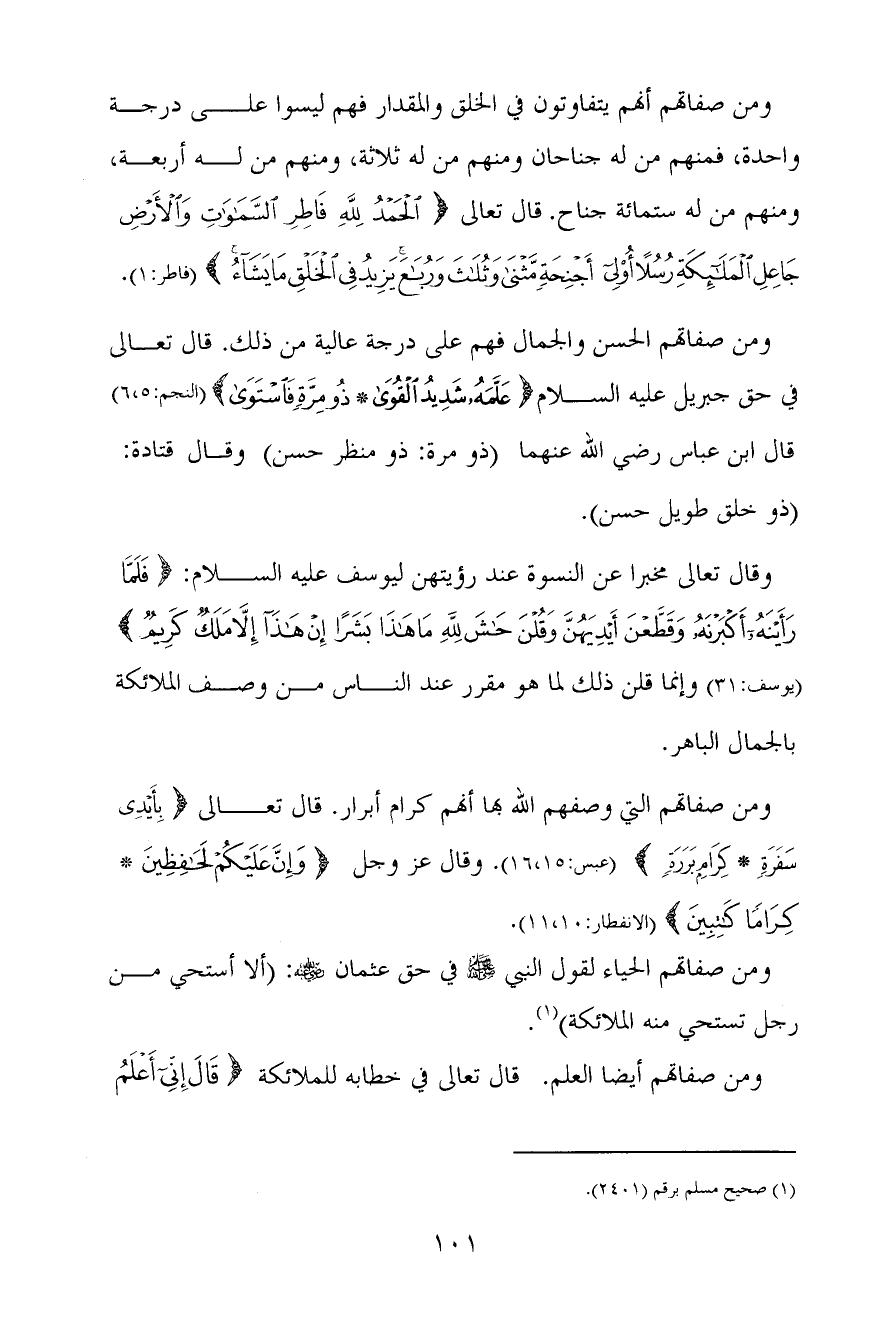 ومن صفاتهم أنهم يتفاوتون في الخلق والمقدار فهم ليسوا علـــى درجـــة
واحدة، فمنهم من له جناحان ومنهم من له ثلاثة، ومنهم من لـــه أربعـــة،
ومنهم من له ستمائة جناح. قال تعالى ﴿ ٱلۡحَمۡدُ لِلَّهِ فَاطِرِ ٱلسَّمَٰوَٰتِ وَٱلۡأَرۡضِ
جَاعِلِ ٱلۡمَلَٰٓئِكَةِ رُسُلًا أُوْلِيٓ أَجۡنِحَةٖ مَّثۡنَىٰ وَثُلَٰثَ وَرُبَٰعَۚ يَزِيدُ فِي ٱلۡخَلۡقِ مَا يَشَآءُۚ ﴾ (فاطر:١).
ومن صفاتهم الحسن والجمال فهم على درجة عالية من ذلك. قال تعـــالى
في حق جبريل عليه الســـلام ﴿ عَلَّمَهُۥ شَدِيدُ ٱلۡقُوَىٰ * ذُو مِرَّةٖ فَٱسۡتَوَىٰ ﴾ (النجم:٦،٥)
قال ابن عباس رضي الله عنهما (ذو مرة: ذو منظر حسن) وقـــال قتادة:
(ذو خلق طويل حسن).
وقال تعالى مخبرا عن النسوة عند رؤيتهن ليوسف عليه الســـلام: ﴿ فَلَمَّا
رَأَيۡنَهُۥٓ أَكۡبَرۡنَهُۥ وَقَطَّعۡنَ أَيۡدِيَهُنَّ وَقُلۡنَ حَٰشَ لِلَّهِ مَا هَٰذَا بَشَرًا إِنۡ هَٰذَآ إِلَّا مَلَكٞ كَرِيمٞ ﴾
(يوسف:٣١) وإنما قلن ذلك لما هو مقرر عند النـــاس مـــن وصـــف الملائكة
بالجمال الباهر.
ومن صفاتهم التي وصفهم الله بها أنهم كرام أبرار. قال تعـــالى ﴿ بِأَيۡدِي
سَفَرَةٖ * كِرَامِۭ بَرَرَةٖ ﴾ (عبس:١٦،١٥). وقال عز وجل ﴿ وَإِنَّ عَلَيۡكُمۡ لَحَٰفِظِينَ *
كِرَامٗا كَٰتِبِينَ ﴾ (الانفطار:١١،١٠).
ومن صفاتهم الحياء لقول النبي ﷺ في حق عثمان رضي الله عنه: (ألا أستحي مـــن
رجل تستحي منه الملائكة)(١).
ومن صفاتهم أيضا العلم. قال تعالى في خطابه للملائكة ﴿ قَالَ إِنِّيٓ أَعۡلَمُ
(١) صحيح مسلم برقم (٢٤٠١).
١٠١